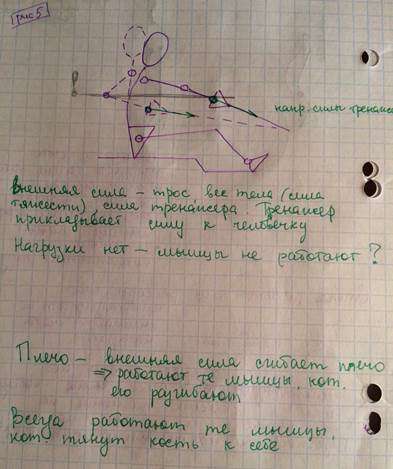 рис 5
P
напр. силы тренажера
Внешняя сила – трос вес тела (сила
тяжести) сила тренажера. Тренажер
прикладывает силу к человечку
Нагрузки нет – мышцы не работают?
Плечо – внешняя сила сгибает плечо
⇒ работают те мышцы, кот.
его разгибают
Всегда работают те мышцы,
кот. тянут кость к себе